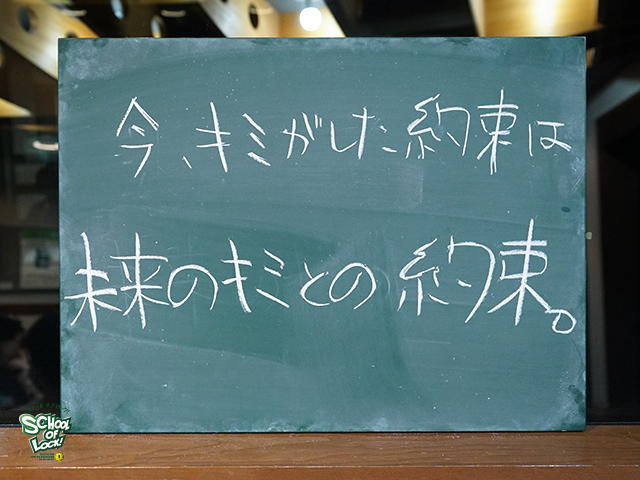 今、キミがした約束は
未来のキミとの約束。
SCHOOL
OF
LOCK!